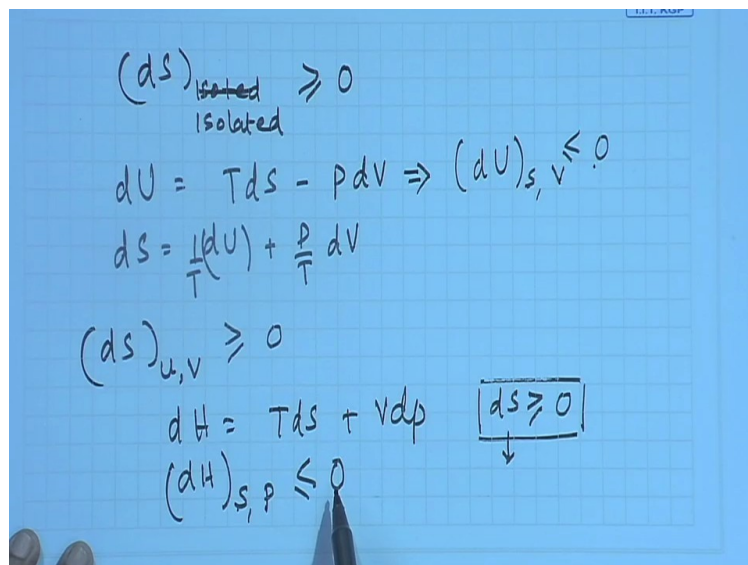 I.I.T. KGP
(dS) Isoted ≥ 0
Isolated
dU = TdS - PdV ⇒ (dU)S, V ≤ 0
dS = 1/T (dU) + P/T dV
(dS)U,V ≥ 0
dH = TdS + Vdp dS ≥ 0
(dH)S, P ≤ 0